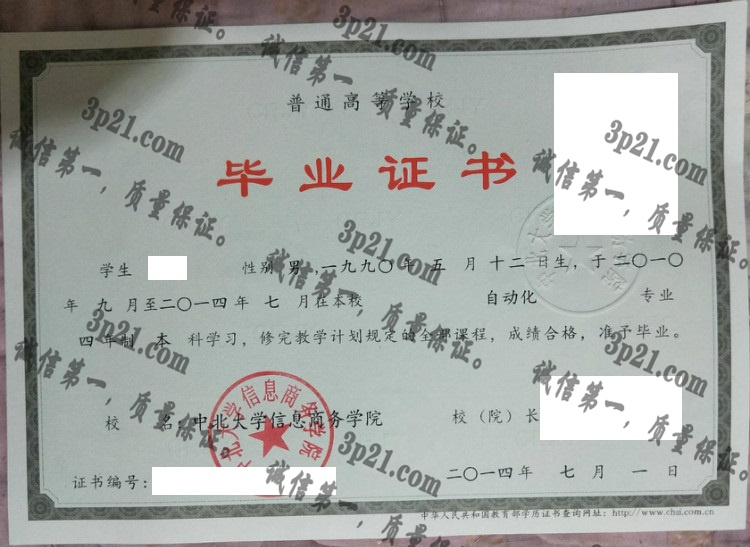 普通高等学校
毕业证书
学生 性别 男 ,一九九〇年 五 月 十二 日生，于 二〇一〇
年 九 月至二〇一四年 七 月在本校 自动化 专业
四年制 本 科学习，修完教学计划规定的全部课程，成绩合格，准予毕业。
校 名：中北大学信息商务学院 校（院）长
中北大学信息商务学院
证书编号： 二〇一四年 七 月 一 日
中华人民共和国教育部学历证书查询网址：http://www.chsi.com.cn
3p21.com
诚信第一，质量保证。
3p21.com
诚信第一，质量保证。
3p21.com
诚信第一，质量保证。
3p21.com
诚信第一，质量保证。
3p21.com
诚信第一，质量保证。
3p21.com
诚信第一，质量保证。
3p21.com
诚信第一，质量保证。
3p21.com
诚信第一，质量保证。